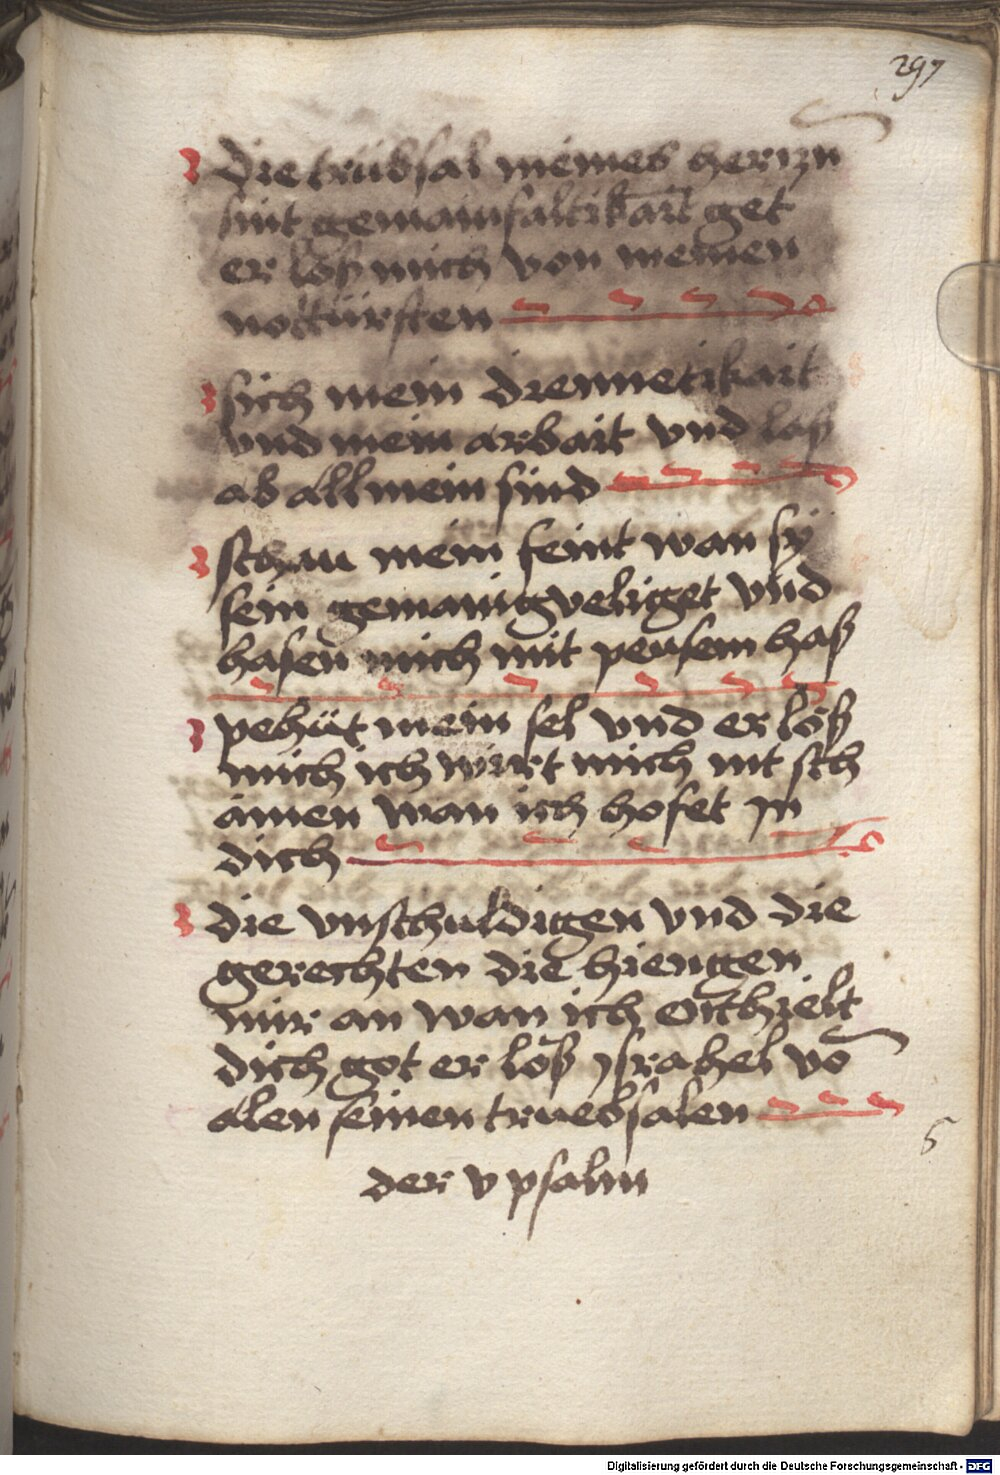 297
die trübsal meines herczn
sint gemainfaltikait get
er lös mich von meinen
notturften
sich mein diemietikait
vnd mein arbait vnd las
ab all mein sind
schau mein feint wan sy
sein gemanigveliget vnd
hasen mich mit posem has
pehüt mein sel vnd er löß
mich ich wirt mich nit sch
amen wan ich hofet in
dich
die vnschuldigen vnd die
gerechten die hiengen
mir an wan ich Oithielt
dich got er löß ysrahel vō
alen seinen truebsalen
5
der v psalm
Digitalisierung gefördert durch die Deutsche Forschungsgemeinschaft - DFG